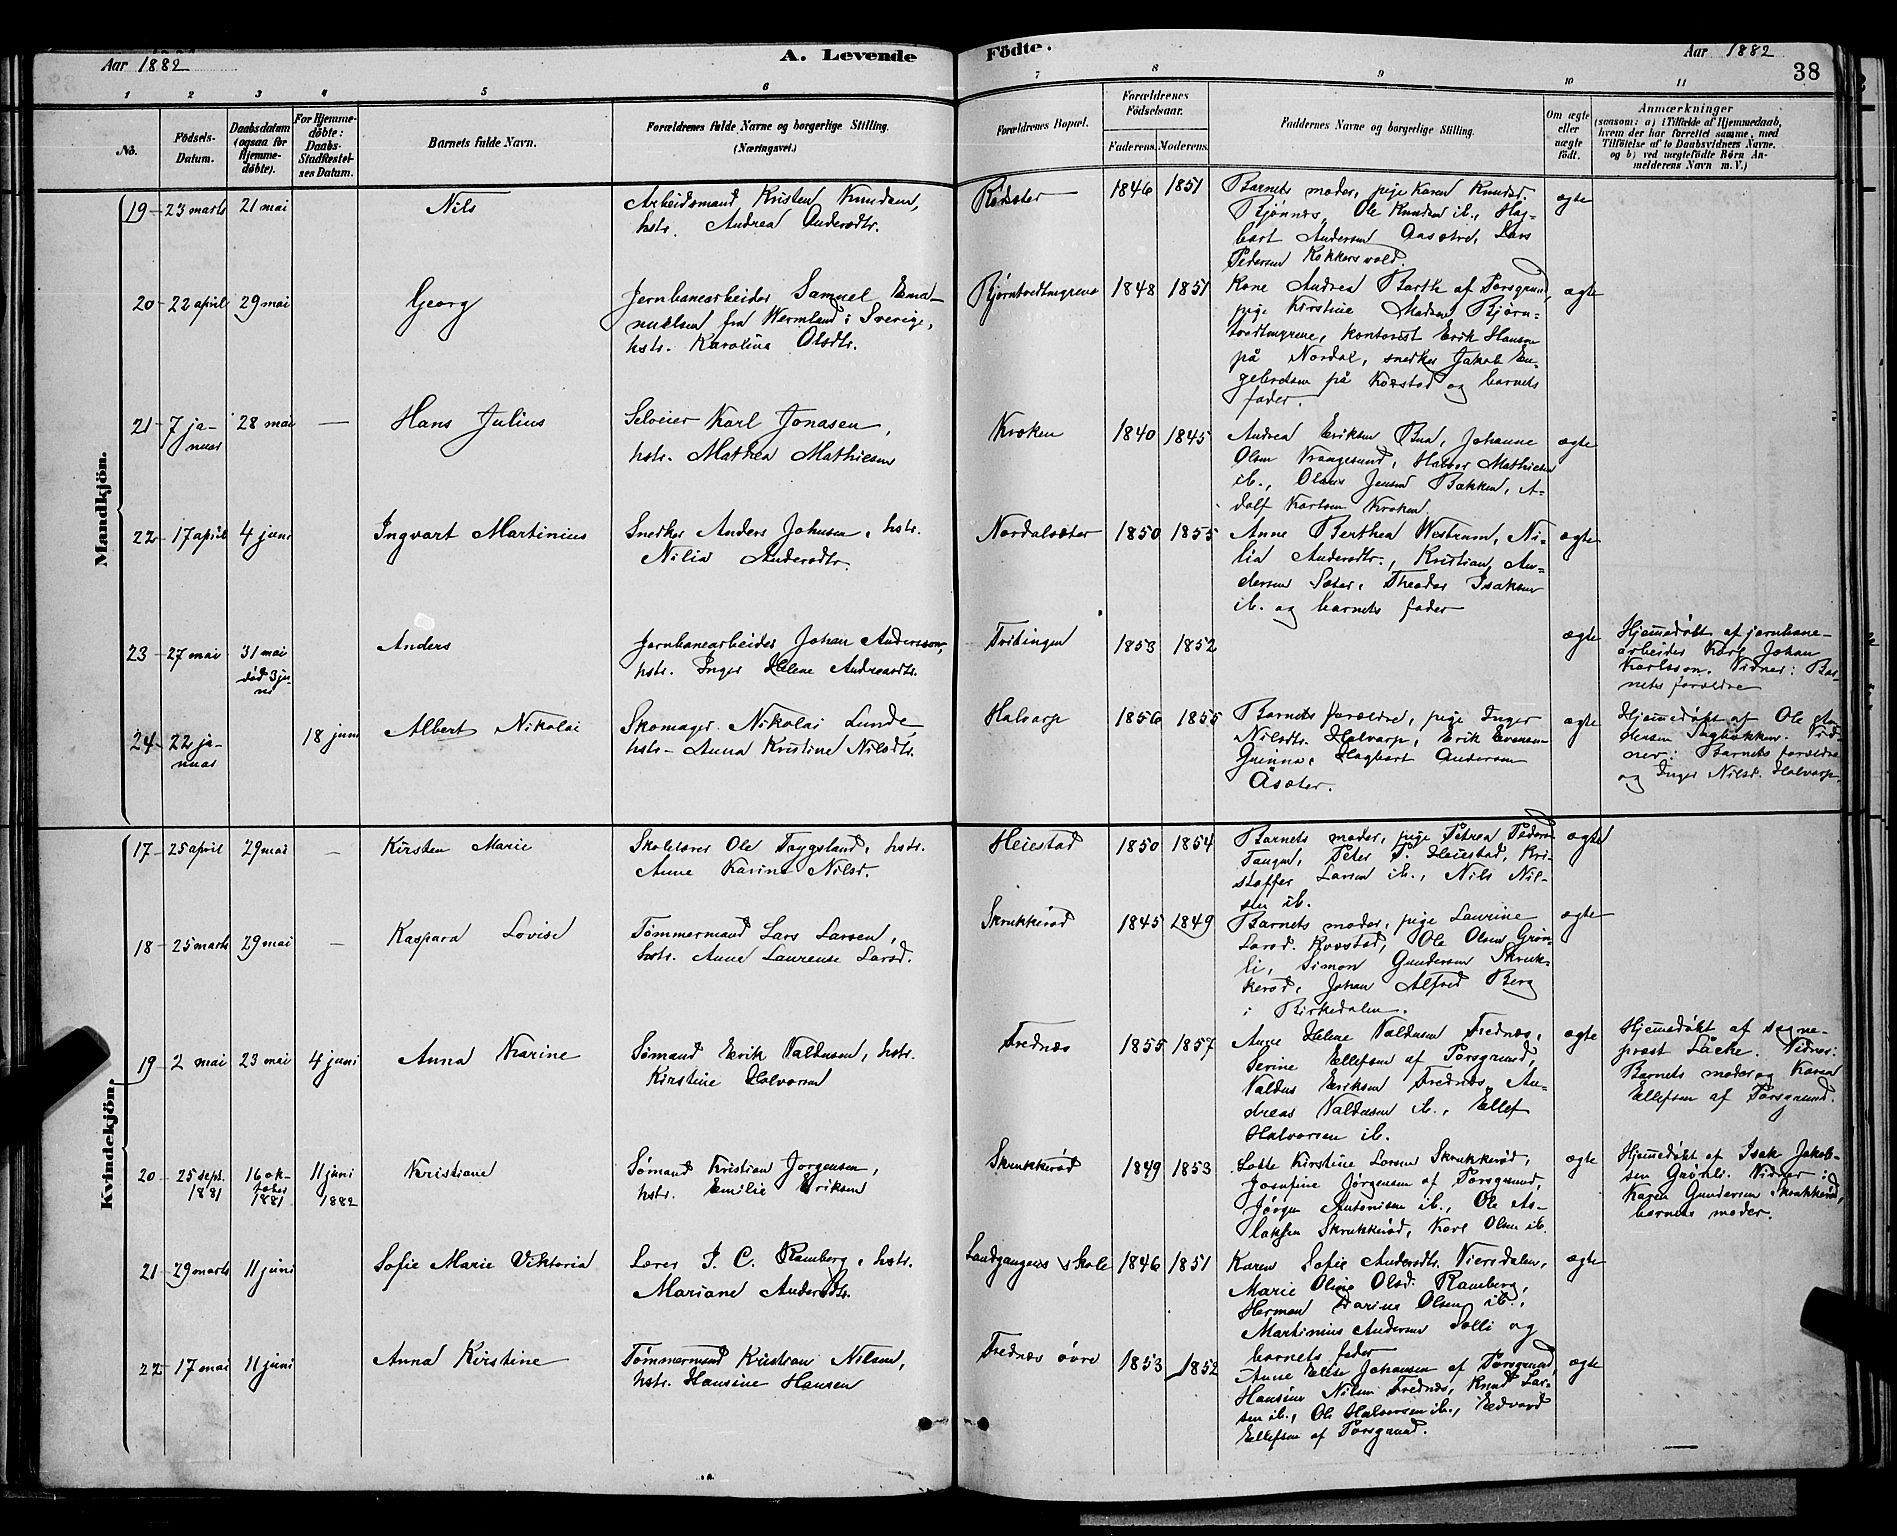 Aar 1882
A. Levende
Födte.
Aar 1882
38
1 2 3 4 5 6 7 8 9 10 11
No.
Födsels-
Datum.
Daabsdatum
(ogsaa for
Hjemme-
döbte).
For Hjemme-
döbte:
Daabs-
Stadfæstel-
ses Datum.
Barnets fulde Navn.
Forældrenes fulde Navne og borgerlige Stilling.
(Næringsvei.)
Forældrenes Bopæl.
Forældrenes
Födselsaar.
Faderens. Moderens.
Faddernes Navne og borgerlige Stilling.
Om ægte
eller
uægte
födt.
Anmærkninger
(saasom: a) i Tilfælde af Hjemmedaab,
hvem der har forrettet samme, med
Tilföielse af to Daabsvidners Navne,
og b) ved uægtefödte Børn An-
melderens Navn m. V.)
Mandkjön.
19 23 marts 21 mai
Nils
Arbeidsmand Kristen Knudsen,
hstr. Andrea Andersdtr.
1846 1851
Barnets moder, pige Karen Knudsd.
Bjønnes, Ole Knudsen ib., Hag-
bart Andersen Aasætre, Lars
Pedersen Kokkersvold.
ægte
20 22 april 29 mai
Georg
Jernbanearbeider Samuel Ema-
nuelsen fra Wermland i Sverige,
hstr. Karolina Olsdtr.
Bjørntvedtmyrene
1848 1851
Kone Andrea Barth af Porsgrund,
pige Kirstine Madsen Bjørn-
tvedtmyrene, kontorist Erik Hansen
på Nordal, snedker Jakob En-
gebretsen på Kværstad og barnets
fader.
ægte
21 7 ja-
nuar
28 mai —
Hans Julius
Selveier Karl Jonasen,
hstr. Mathea Mathisen
Kroken
1840 1845
Andrea Eriksen Bua, Johanne
Olsen Vrangesund, Halvor Mathisen
ib., Olaus Jensen Bakken, A-
dolf Karlsen Kroken
ægte
22 17 april 4 juni
Ingvart Martinius
Snedker Anders Johnsen, hstr.
Nilia Andersdtr.
Nordalsæter
1850 1855
Anne Berthea Westrum, Ni-
lia Andersdtr., Kristian An-
dersen Sæter, Theodor Isaksen
ib. og barnets fader
ægte
23 27 mai 31 mai
død 3 ju-
ni
Anders
Jernbanearbeider Johan Andersson,
hstr. Inger Helene Andreasdtr.
1853 1852
ægte
Hjemmedøbt af jernbane-
arbeider Karl Johan
Karlsson. Vidner: Bar-
nets forældre
24 22 ja-
nuar
18 juni
Albert Nikolai
Skomager Nikolai Lunde
hstr. Anna Kristine Nilsdtr.
Halvarp
1856 1855
Barnets forældre, pige Inger
Nilsdtr. Halvarp, Erik Evensen
Grinna, Hagbart Andersen
Åsæter.
ægte
Hjemmedøbt af Ole An-
dersen Vid-
ner: Barnets forældre
og Inger Nilsd. Halvarp.
Kvindekjön.
17 25 april 29 mai —
Kirsten Marie
Skolelærer Ole Trygsland, hstr.
Anne Karine Nilsd.
Heiestad
1850 1854
Barnets moder, pige Petrea Peders.
Tangen, Peter P. Heiestad, Kri-
stoffer Larsen ib., Nils Nil-
sen ib.
ægte
18 25 marts 29 mai —
Kaspara Lovise
Tømmermand Lars Larsen,
hstr. Anne Laurense Larsd.
Skrukkerød
1845 1849
Barnets moder, pige Laurine
Larsd. Kværstad, Ole Olsen Grøn-
li, Simon Gundersen Skruk-
kerød, Johan Alfred Berg
i Birkedalen.
ægte
19 2 mai 23 mai 4 juni
Anna Karine
Sømand Erik Valdusen, hstr.
Kirstine Halvorsen
Frednæs
1855 1857
Anne Helene Valdusen Frednæs,
Serine Ellefsen af Porsgrund,
Valdus Eriksen Frednæs, An-
dreas Valdusen ib., Ellef
Halvorsen ib.
ægte
Hjemmedøbt af sogne-
præst Låche. Vidner:
Barnets moder og Karen
Ellefsen af Porsgrund.
20 25 sept.
1881
16 ok-
tober
1881
11 juni
1882
Kristiane
Sømand Kristian Jørgensen,
hstr. Emilie Eriksen
Skrukkerød
1849 1853
Lotte Kirstine Larsen Skrukkerød,
Josefine Jørgensen af Porsgrund,
Jørgen Antonisen ib., Ole As-
laksen Skrukkerød, Karl Olsen ib.
ægte
Hjemmedøbt af Isak Jakob-
sen Grønli. Vidner:
Karen Gundersen Skrukkerød,
barnets moder.
21 29 marts 11 juni
Sofie Marie Viktoria
Lærer I. C. Ramberg, hstr.
Mariane Andersdtr.
Landgangens skole
1846 1851
Karen Sofie Andersdtr. Viersdalen,
Marie Oline Olsd. Ramberg,
Herman Darius Olsen ib.,
Martinius Andersen Solli og
barnets fader
ægte
22 17 mai 11 juni
Anna Kirstine
Tømmermand Kristian Nilsen,
hstr. Hansine Hansen
Frednæs øvre
1853 1852
Anne Elise Johansen af Porsgrund,
Hansine Nilsen Frednæs, Knud Lar-
sen ib., Ole Halvorsen ib., Edvard
Ellefsen af Porsgrund.
ægte